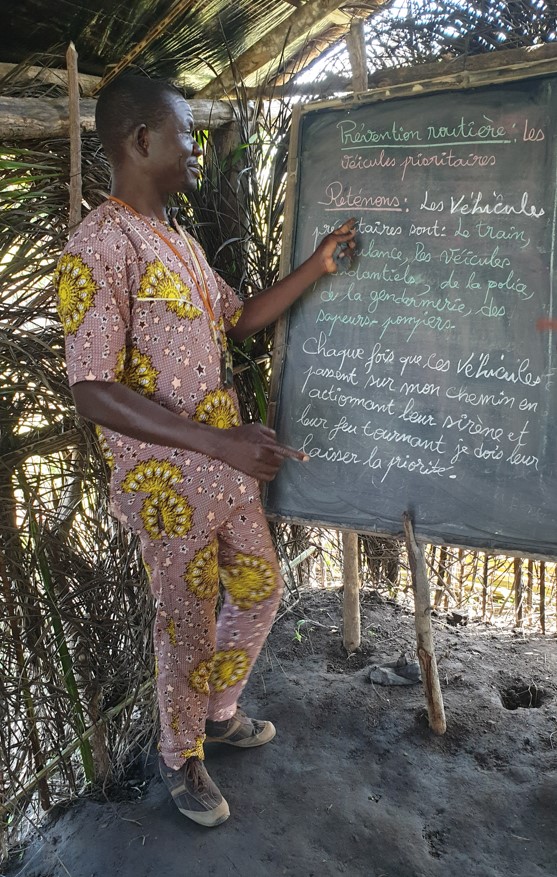 Prévention routière : les
véicules prioritaires
Reténons : Les Véhicules
taires sont : Le train,
lance, les véicules
de la police,
de la gendarmerie, des
sapeurs-pompiers.
Chaque fois que ces véhicules
passent sur mon chemin en
actionnant leur sirène et
leur feu tournant je dois leur
laisser la priorité.